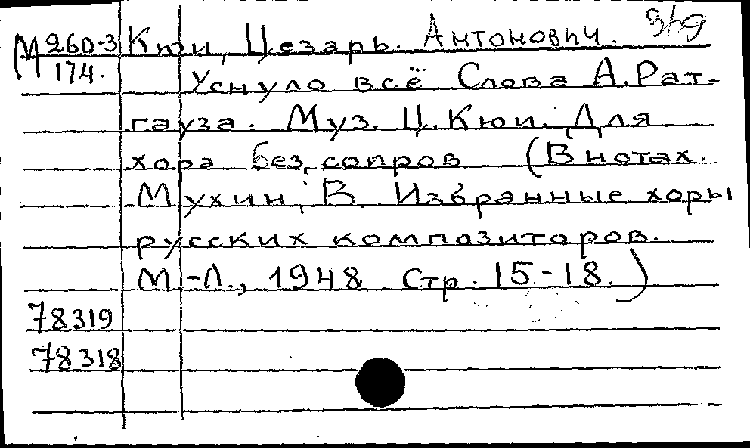 М 260-3 Кюи, Цезарь. Антонович.
174. Уснуло всё Слова А. Рат-
гауза. Муз. Ц. Кюи. Для
хора без сопров (В нотах.
Мухин, В. Избранные хоры
русских композиторов.
М-Л., 1948 Стр. 15-18.)
78319
78318